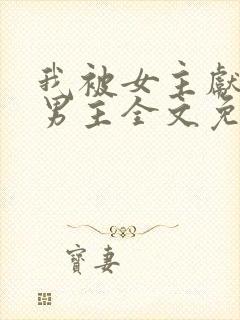 我被女主献
男主全文免
寶妻